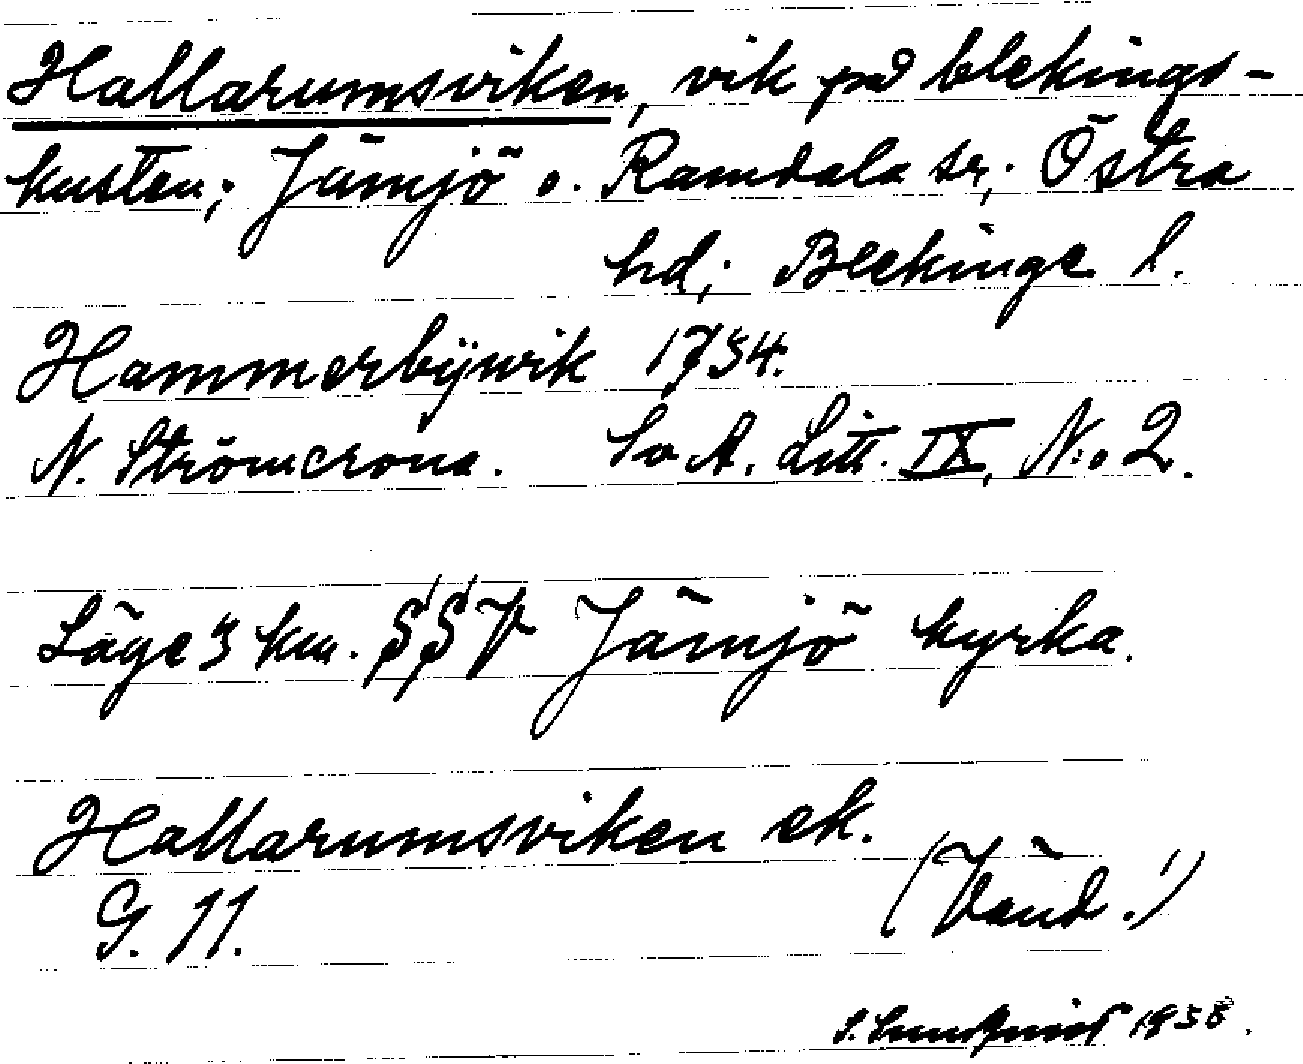 Hallarumsviken, vik på blekings-
kusten; Jämjö o. Ramdala sr; Östra
hd; Blekinge l.
Hammerbÿwik 1734.
N. Strömcrona. Sv A. Litt. IX, N:o 2.
Läge 3 km. SSV Jämjö kyrka.
Hallarumsviken ek.
G. 11.
(Vänd!)
S. Lundquist 1938.